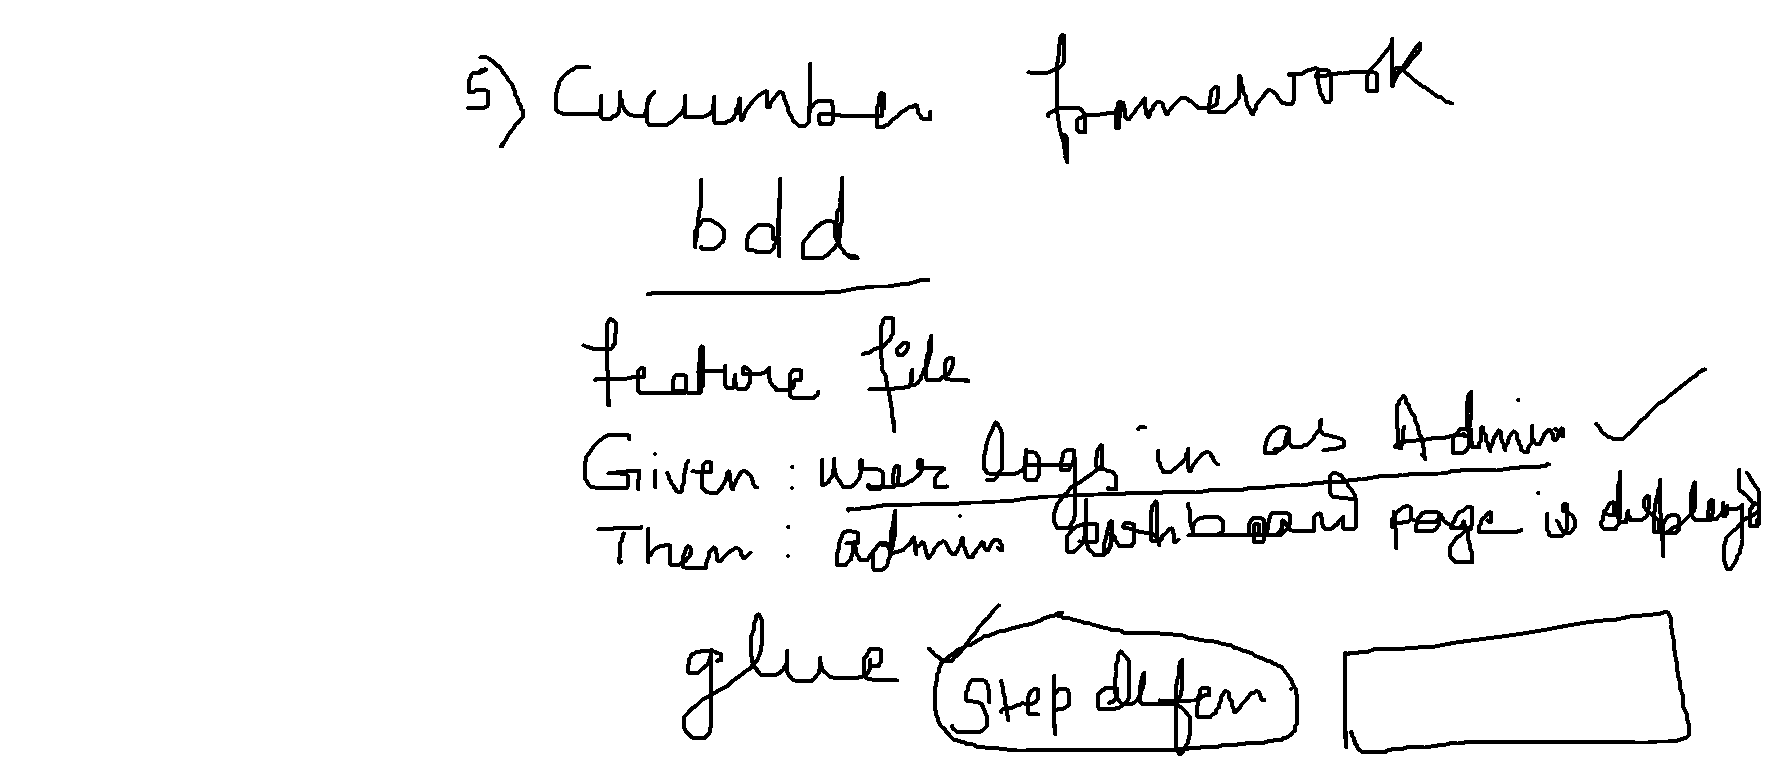 5) Cucumber framework
bdd
feature file
Given : user logs in as Admin
Then : admin dashboard page is displayed
glue Step defen